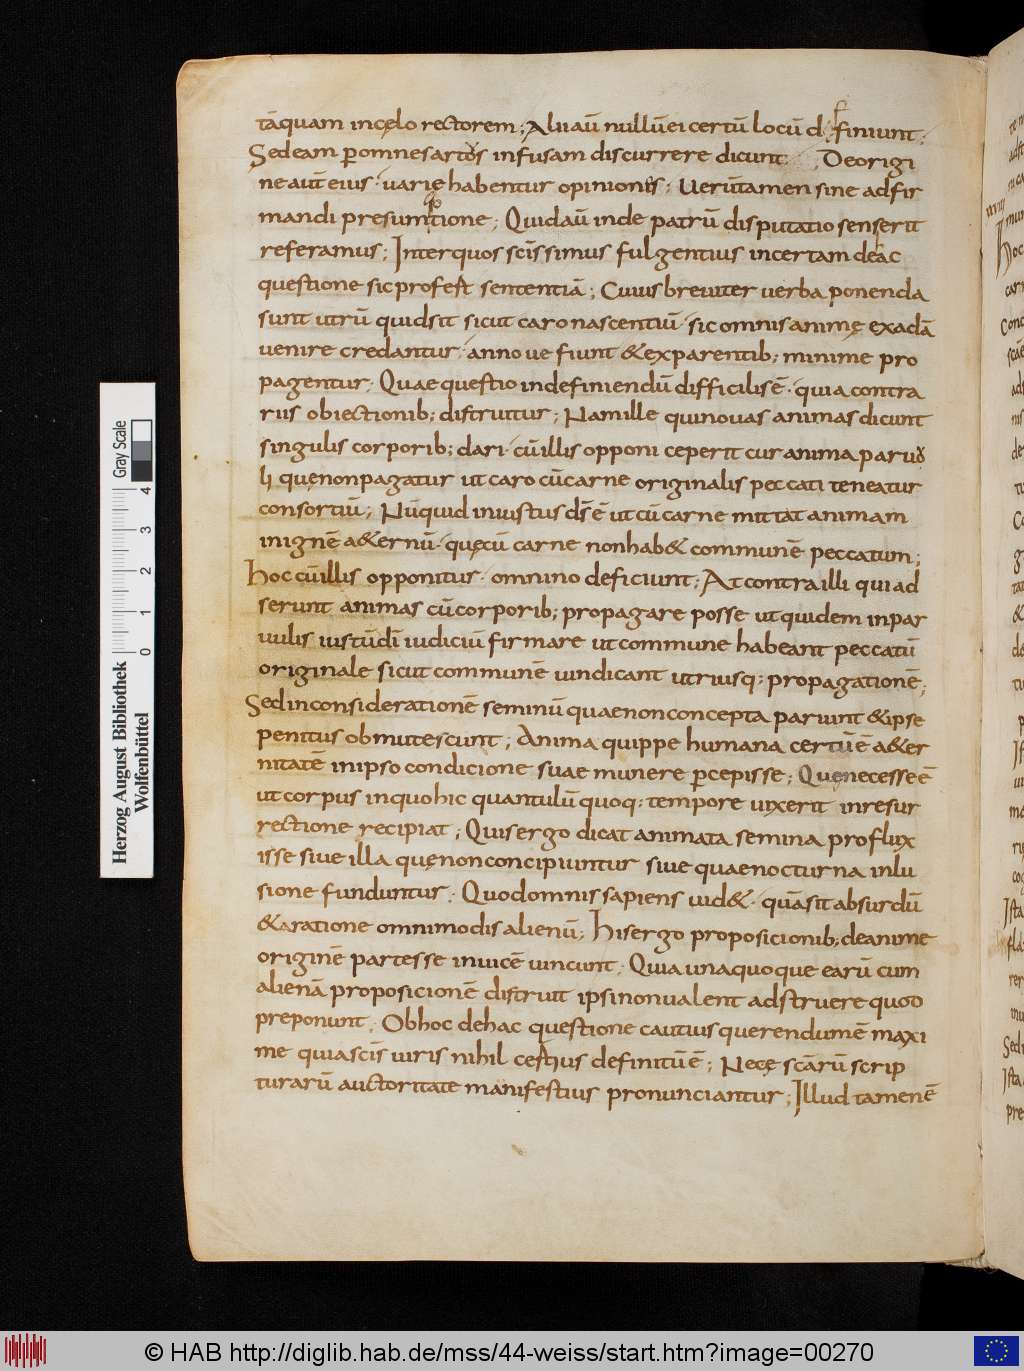 tāquam incęlo rectorem; Alii aū nullū ei certū locū difiniunt;
Sed eam ꝑ omnes artus infusam discurrere dicunt; De origi
ne aut̄ eius · varię habentur opiniones; Uerūtamen sine adfir
mandi presumptione; Quid aū inde patrū disputatio senserit
referamus; Inter quos scīssimus fulgentius incertam de hac
questione sic profest sententiā; Cuius breuiter uerba ponenda
sunt utrū quid sit sicut caro nascentiū · sic omnis animę ex adā
uenire credantur · an noue fiunt & ex parentib; minime pro
pagentur · Quae questio in definiendū difficilis ē · quia contra
riis obiectionib; distruitur; Nam ille qui nouas animas dicunt
singulis corporib; dari · cū illis opponi ceperit cur anima paruu
li quę non pagatur ut caro cū carne originalis peccati teneatur
consortiū; Nūquid iniustus dſ̄ ē ut cū carne mittat animam
in ignē a&ernū · quę cū carne non hab& communē peccatum;
Hoc cū illis opponitur · omnino deficiunt; At contra illi qui ad
serunt animas cū corporib; propagare posse ut quidem in par
uulis iustū dī iudiciū firmare ut commune habeant peccatū
originale sicut communē uindicant utriusq; propagationē;
Sed in considerationē seminū quae non concepta pariunt & ipse
penitus obmutescunt; Anima quippe humana certū ē a&er
nitatē in ipso condicione suae munere ꝑcepisse; Quę necesse ē
ut corpus in quo hic quantulū quoq; tempore uixerit in resur
rectione recipiat; Quis ergo dicat animata semina proflux
isse siue illa quę non concipiuntur siue quae nocturna inlu
sione funduntur · Quod omnis sapiens uid& · quā sit absurdū
& a ratione omnimodis alienū; His ergo proposicionib; de anime
originē partes se inuicē uincunt · Quia unaquoque earū cum
alienā proposicionē distruit ipsi non ualent adstruere quod
preponunt; Ob hoc de hac questione cautius querendum ē maxi
me quia scīs uiris nihil certius definitū ē; Nec ę scārū scrip
turarū auctoritate manifestius pronunciantur; Illud tamen ē
Gray Scale
0 1 2 3 4
Herzog August Bibliothek
Wolfenbüttel
© HAB http://diglib.hab.de/mss/44-weiss/start.htm?image=00270